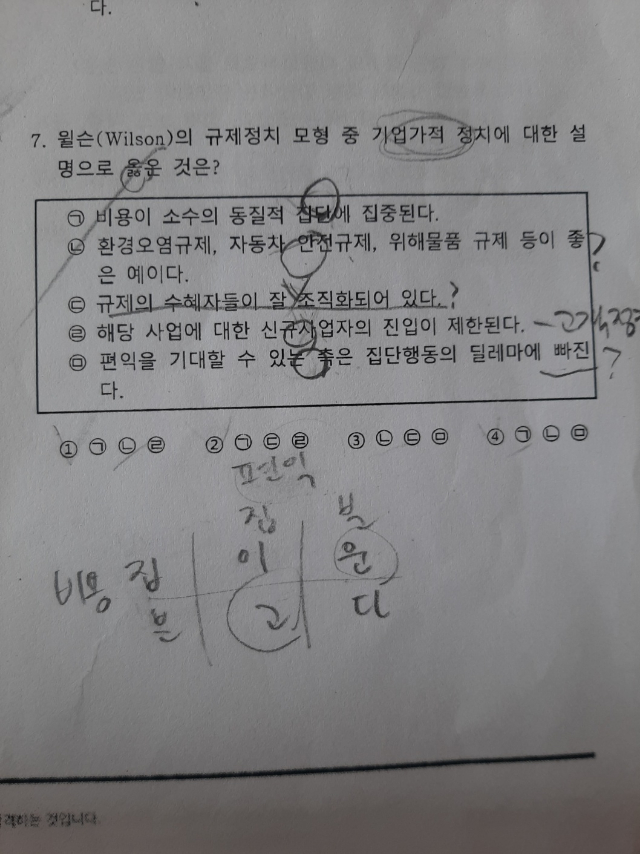 다.
7. 윌슨(Wilson)의 규제정치 모형 중 기업가적 정치에 대한 설
명으로 옳은 것은?
㉠ 비용이 소수의 동질적 집단에 집중된다.
㉡ 환경오염규제, 자동차 안전규제, 위해물품 규제 등이 좋
은 예이다.
?
㉢ 규제의 수혜자들이 잘 조직화되어 있다. ?
㉣ 해당 사업에 대한 신규사업자의 진입이 제한된다. - 고객정
㉤ 편익을 기대할 수 있는 측은 집단행동의 딜레마에 빠진 ?
다.
① ㉠ ㉡ ㉣ ② ㉠ ㉢ ㉣ ③ ㉡ ㉢ ㉤ ④ ㉠ ㉡ ㉤
편익
집 분
비용 집 이 운
분 고 다
격하는 것입니다.